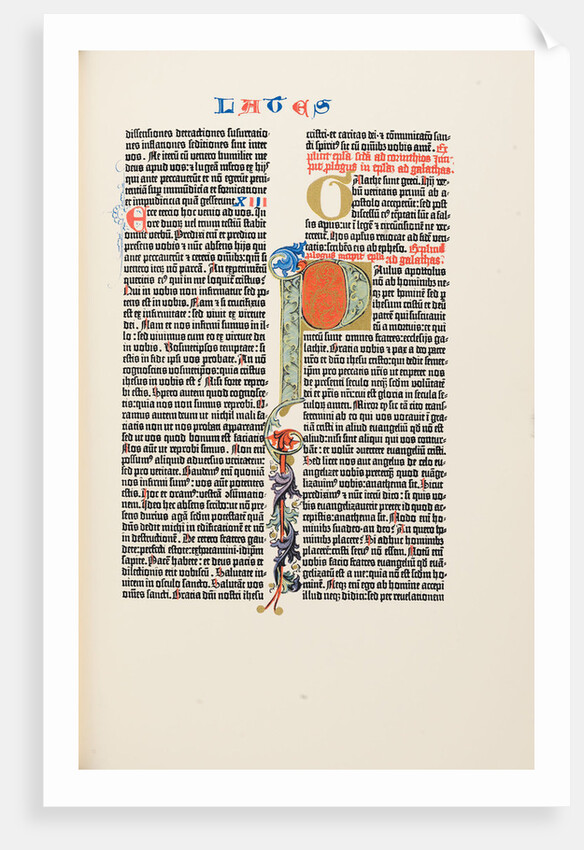 LATES
dissensiones detractiones susurratio-
nes inflationes seditiones sint inter
vos. Ne iterū cū venero humiliet me
deus apud vos: et lugeā multos ex hijs
qui ante peccaverūt et nō egerūt peni-
tentiā sup immūdicia et fornicatione
et impudicicia quā gesserunt. XIII
Ecce tercio hoc venio ad vos. In
ore duorū vel trium testiū stabit
omne verbū. Predixi enī et predico ut
presens vobis et nūc absens hijs qui
ante peccaverūt et ceteris omībus: qm̄ si
venero iterū nō parcā. An experimētū
queritis eius qui in me loquit cristus?
Qui in vobis non infirmatur sed po-
tens est in vobis. Nam et si crucifixus
est ex infirmitate: sed vivit ex virtute
dei. Nam et nos infirmi sumus in il-
lo: sed vivimus cum eo ex virtute dei
in vobis. Vosmetipsos temptate: si
estis in fide ipsi vos probate. An nō
cognoscitis vosmetipsos: quia cristus
ihesus in vobis est? Nisi forte repro-
bi estis. Spero autem quod cognosce-
tis: quia nos non sumus reprobi. O-
ramus autem deum ut nichil mali fa-
ciatis non ut nos probati appareamus
sed ut vos quod bonum est faciatis
Nos aūt ut reprobi simus. Non enī
possumus aliquid adversus veritatem:
sed pro veritate. Gaudemus enī quoniā
nos infirmi sumus: vos aūt potentes
estis. Hoc et oramus: vestrā cōsūmatio-
nem. Ideo hec absens scribo: ut nō pre-
sens durius agā scdm potestatē quā
dn̄s dedit michi in edificationē et nō
in destructionē. De cetero fratres gau-
dete: perfecti estote: exhortamini: idipsum
sapite. Pacē habete: et deus pacis et
dilectionis erit vobiscū. Salutate in-
vicem in osculo sancto. Salutāt vos
om̄es sancti. Gratia dn̄i nostri ihesu
cristi: et caritas dei: et cōmunicatō san-
cti spiritus sit cū omībus vobis amē. Ex-
plicit epl̄a scd̄a ad corinthios Inci-
pit plogus in epl̄aȝ ad galathas.
Galathe sunt greci. Hij ver-
bū veritatis primū ab a-
postolo acceperūt: sed post
discessū eius tēptati sūt a fal-
sis apostolis: ut ī legē et circūcisionē ver-
terent. Hos apostolus revocat ad fidē veri-
tatis: scribens eis ab epheso. Explicit
plogus incipit epl̄a ad galathas.
Paulus apostolus
nō ab hominibus ne-
qȝ per hominē sed p
ihesum cristū et deū
patrē qui suscitavit
eū a mortuis: et qui
mecū sunt omnes fratres: ecclesijs ga-
lathie. Gratia vobis et pax a deo patre
nr̄o et dn̄o ihesu cristo: qui dedit semet-
ipm̄ pro peccatis nr̄is ut eriperet nos
de presenti seculo neqȝ scdm volūtatē
dei et pr̄is nr̄i: cui est gloria in secula se-
culorū amen. Miror qȝ sic tā cito trans-
ferimini ab eo qui vos vocavit ī gra-
tiā cristi in aliud euangeliū: qd nō est
aliud: nisi sunt aliqui qui vos contur-
bāt: et volūt evertere euangeliū cristi.
Sed licet nos aut angelus de celo eu-
angelizet vobis pretercȝ quod euange-
lizavimus vobis: anathema sit. Sicut
prediximus et nūc iterū dico: si quis vo-
bis euangelizaverit preter id quod ac-
cepistis: anathema sit. Modo enī ho-
minibus suadeo an deo? An quero ho-
minibus placere? Si adhuc hominibus
placerē: cristi servus nō essem. Notū enī
vobis facio fratres euangeliū qd euā-
gelizatū est a me: quia nō est scdm ho-
minē. Neqȝ enī ego ab homine accepi
illud neqȝ didici: sed per revelationem